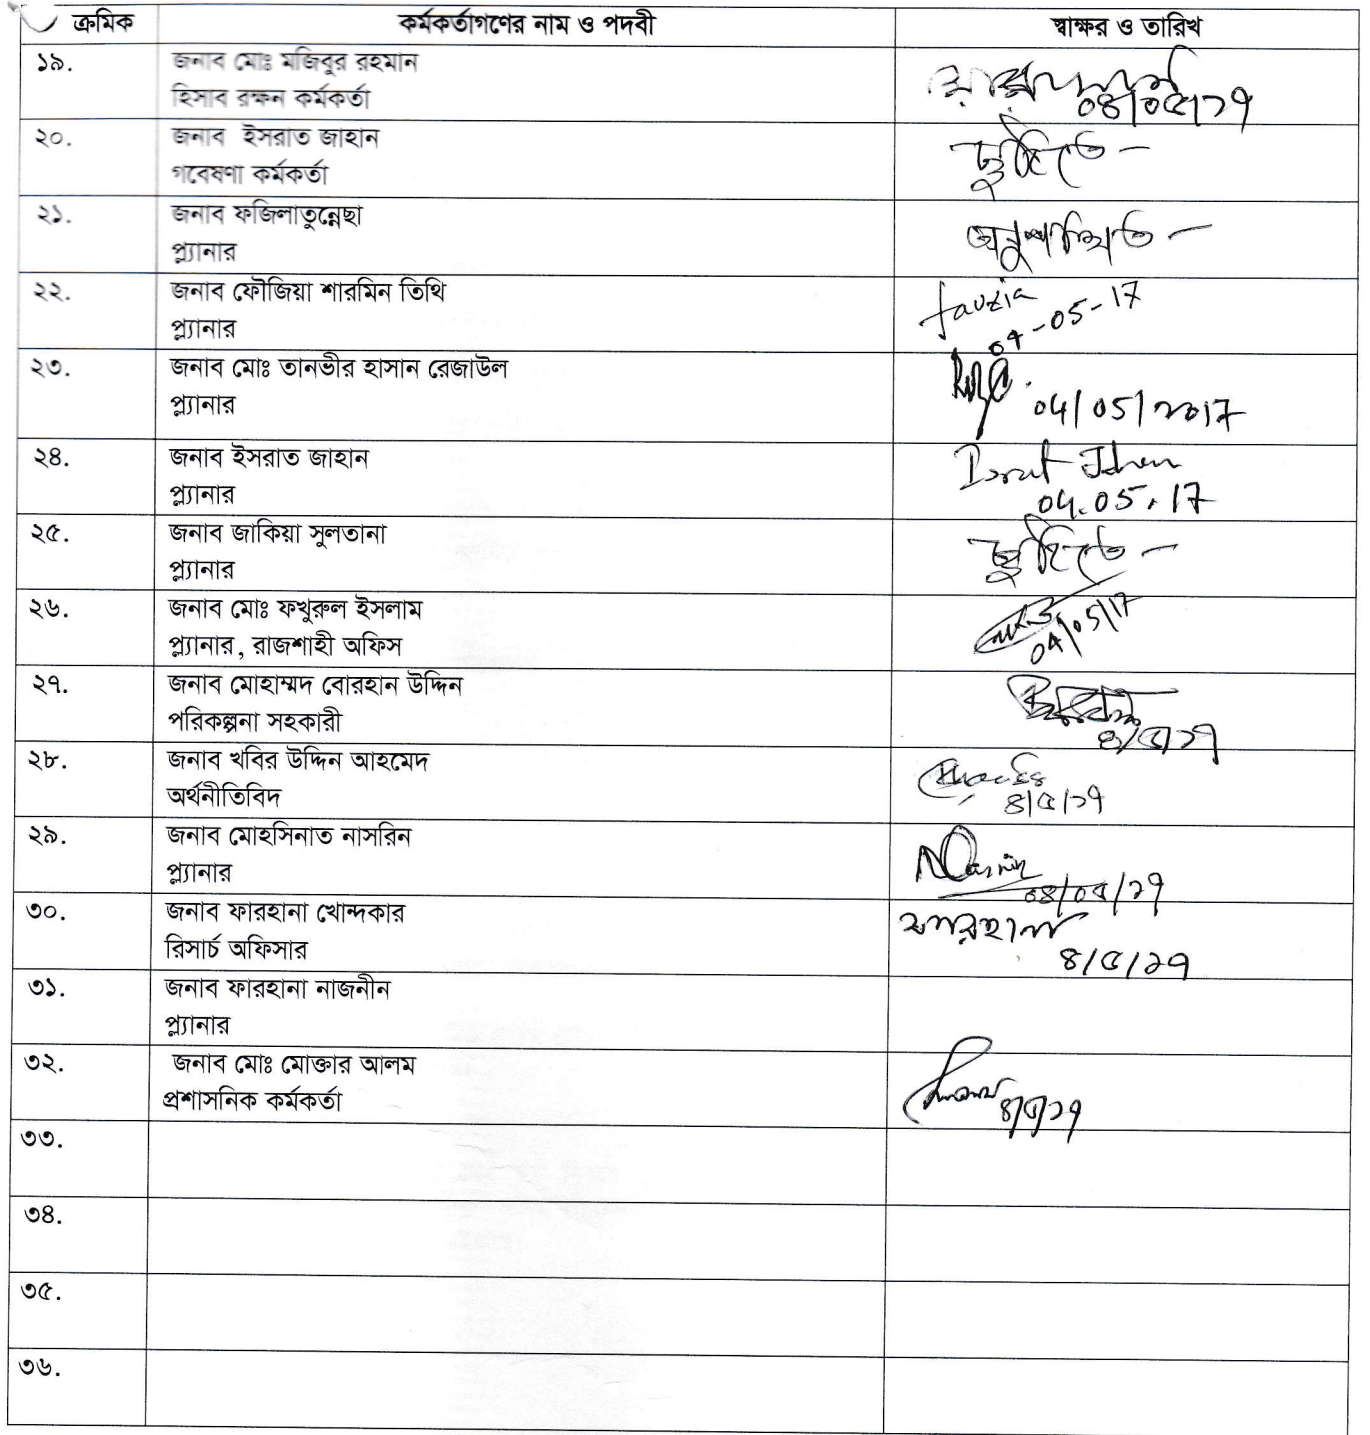 ক্রমিক কর্মকর্তাগণের নাম ও পদবী স্বাক্ষর ও তারিখ
১৯. জনাব মোঃ মজিবুর রহমান
হিসাব রক্ষন কর্মকর্তা ০৪/০৫/১৭
২০. জনাব ইসরাত জাহান ছুটিতে -
গবেষণা কর্মকর্তা
২১. জনাব ফজিলাতুন্নেছা অনুপস্থিত -
প্ল্যানার
২২. জনাব ফৌজিয়া শারমিন তিথি fauzia
প্ল্যানার 04-05-17
২৩. জনাব মোঃ তানভীর হাসান রেজাউল
প্ল্যানার 04/05/2017
২৪. জনাব ইসরাত জাহান Israt Jahan
প্ল্যানার 04.05.17
২৫. জনাব জাকিয়া সুলতানা ছুটিতে -
প্ল্যানার
২৬. জনাব মোঃ ফখুরুল ইসলাম
প্ল্যানার, রাজশাহী অফিস 04/05/17
২৭. জনাব মোহাম্মদ বোরহান উদ্দিন
পরিকল্পনা সহকারী ৪/৫/১৭
২৮. জনাব খবির উদ্দিন আহমেদ
অর্থনীতিবিদ ৪/৫/১৭
২৯. জনাব মোহসিনাত নাসরিন Nasrin
প্ল্যানার ০৪/০৫/১৭
৩০. জনাব ফারহানা খোন্দকার ফারহানা
রিসার্চ অফিসার ৪/৫/১৭
৩১. জনাব ফারহানা নাজনীন
প্ল্যানার
৩২. জনাব মোঃ মোক্তার আলম
প্রশাসনিক কর্মকর্তা ৪/৫/১৭
৩৩.
৩৪.
৩৫.
৩৬.